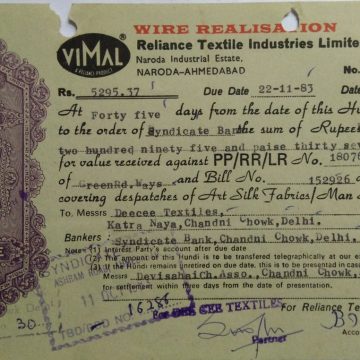 WIRE REALISATION
VIMAL®
A RELIANCE PRODUCT
Reliance Textile Industries Limite
Naroda Industrial Estate,
NARODA-AHMEDABAD
No.
Rs. 5295.37 Due Date 22-11-83
At Forty five days from the date of this Hu
to the order of Syndicate Bank the sum of Rupee
two hundred ninety five and paise thirty sev
for value received against PP/RR/LR No. 18076
of GreenRd.Ways and Bill No. 152926 of
covering despatches of Art Silk Fabrics/Man
To Messrs Deecee Textiles,
Katra Naya, Chandni Chowk, Delhi.
Bankers : Syndicate Bank, Chandni Chowk, Delhi.
Note:(1) Interest Party's account after due date.
(2) The amount of this Hundi is to be transferred telegraphically at our e
(3) If the Hundi remains unretired on due date, this is to be presented
Messrs Devisshaich, Asso., Chandni Chowk,
settlement within three days from the date of presentation.
SYNDIC
ASHRAM
11 OCT
AHMEDABAD
30
16286
For DEE CEE TEXTILES
Partner
For Reliance Te
B2
Acco